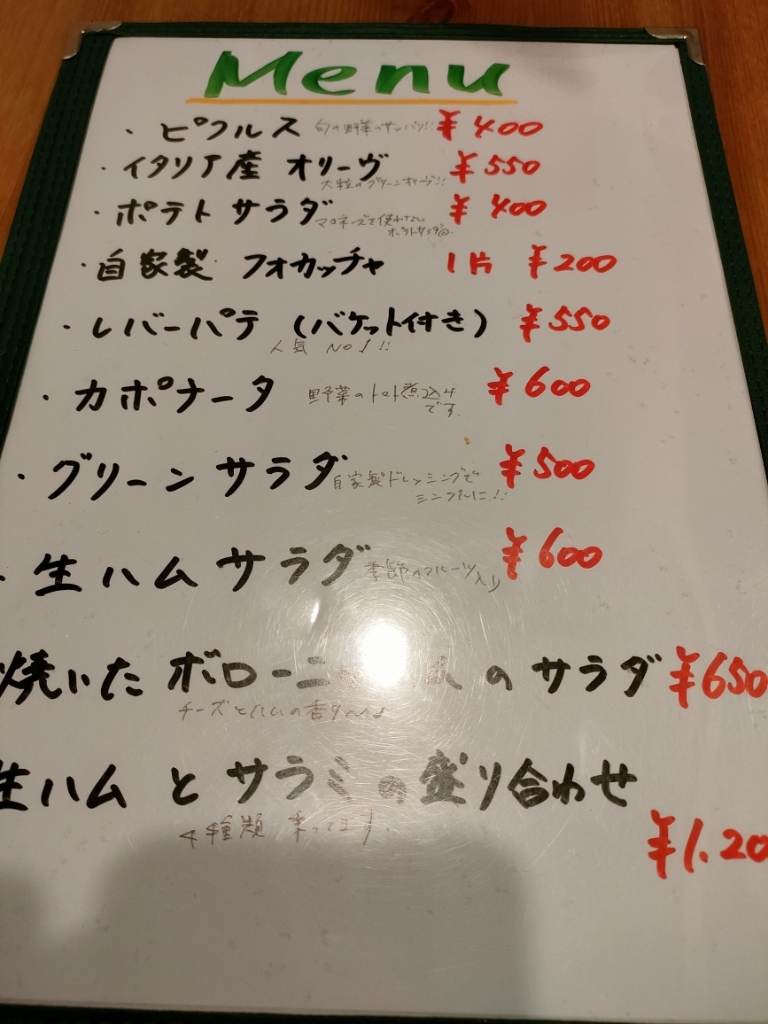 Menu
・ピクルス 旬の野菜 !! ¥400
・イタリア産 オリーヴ ¥550
大粒のグリーンオリーヴ!!
・ポテトサラダ マヨネーズを使わない ¥400
ポテトサラダ
・自家製 フォカッチャ 1片 ¥200
・レバーパテ (バケット付き) ¥550
人気 No1!!
・カポナータ 野菜のトマト煮込み ¥600
です。
・グリーンサラダ 自家製ドレッシングで ¥500
シンプルに!!
・生ハムサラダ 季節のフルーツ入り ¥600
焼いた ボローニ のサラダ ¥650
チーズとハムの香り
生ハムとサラミの盛り合わせ
4種類 乗ってます。
¥1.20